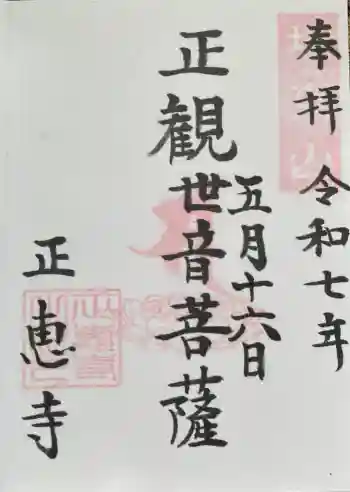 奉拝 令和七年
五月十六日
正観世音菩薩
正恵寺